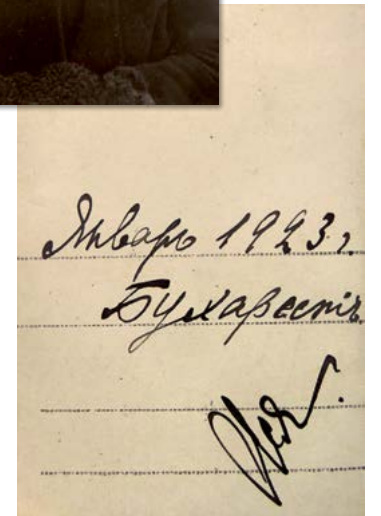 Январь 1923 г.
Бухарестъ